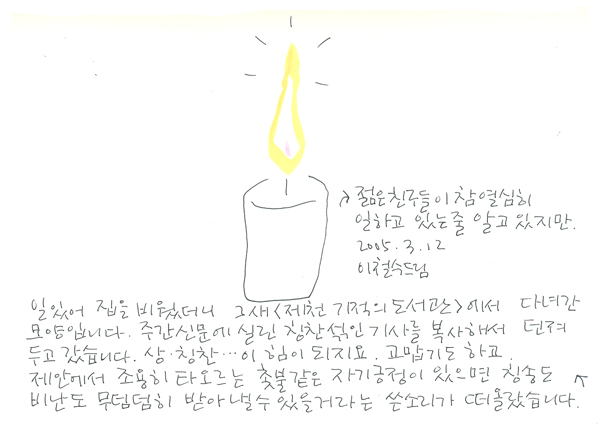 일있어 집을 비웠더니 그새<제천 기적의도서관>에서 다녀간
모양입니다. 주간신문에 실린 칭찬섞인 기사를 복사해서 던져
두고 갔습니다. 상·칭찬…이 힘이 되지요. 고맙기도 하고.
제안에서 조용히 타오르는 촛불같은 자기긍정이 있으면 칭송도
비난도 무덤덤히 받아낼수 있을거라는 쓴소리가 떠올랐습니다.
젊은친구들이 참 열심히
일하고 있는줄 알고 있지만.
2005.3.12
이철수드림